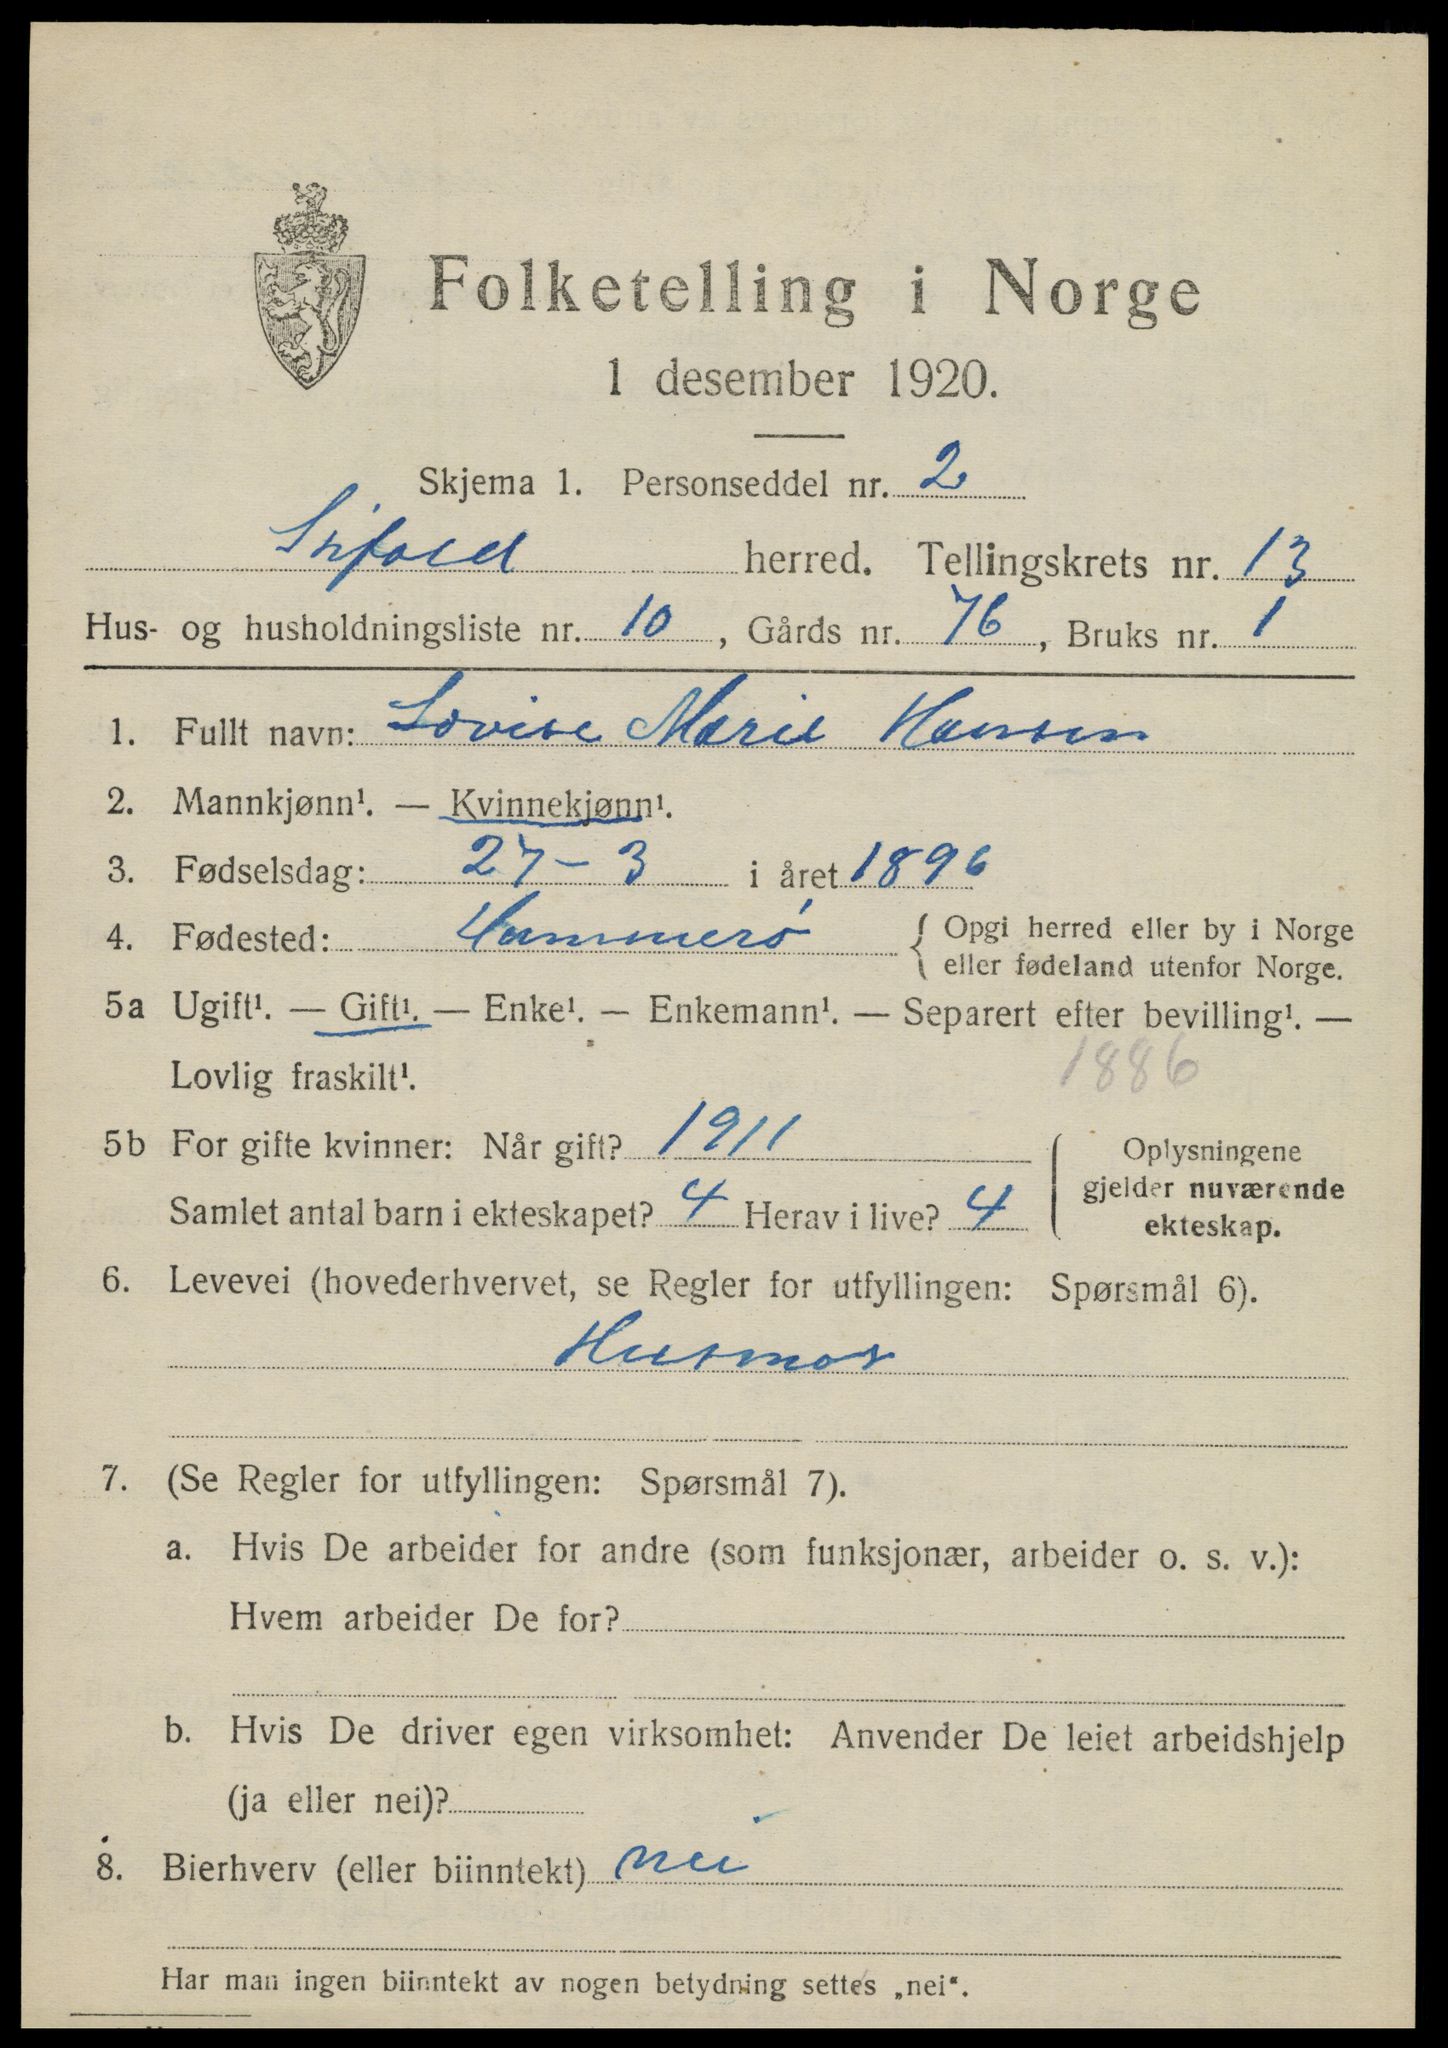 Folketelling i Norge
1 desember 1920.
Skjema 1. Personseddel nr. 2
herred. Tellingskrets nr. 13
Hus- og husholdningsliste nr. 10, Gårds nr. 76, Bruks nr. 1
1. Fullt navn: Lovise Marie Hansen
2. Mannkjønn¹. — Kvinnekjønn¹.
3. Fødselsdag: 27-3 i året 1896
4. Fødested: Hammerø { Opgi herred eller by i Norge
eller fødeland utenfor Norge.
5a Ugift¹. — Gift¹. — Enke¹. — Enkemann¹. — Separert efter bevilling¹. —
Lovlig fraskilt¹. 1886
5b For gifte kvinner: Når gift? 1911
Samlet antal barn i ekteskapet? 4 Herav i live? 4
Oplysningene
gjelder nuværende
ekteskap.
6. Levevei (hovederhvervet, se Regler for utfyllingen: Spørsmål 6).
Husmor
7. (Se Regler for utfyllingen: Spørsmål 7).
a. Hvis De arbeider for andre (som funksjonær, arbeider o. s. v.):
Hvem arbeider De for?
b. Hvis De driver egen virksomhet: Anvender De leiet arbeidshjelp
(ja eller nei)?
8. Bierhverv (eller biinntekt) nei
Har man ingen biinntekt av nogen betydning settes „nei“.